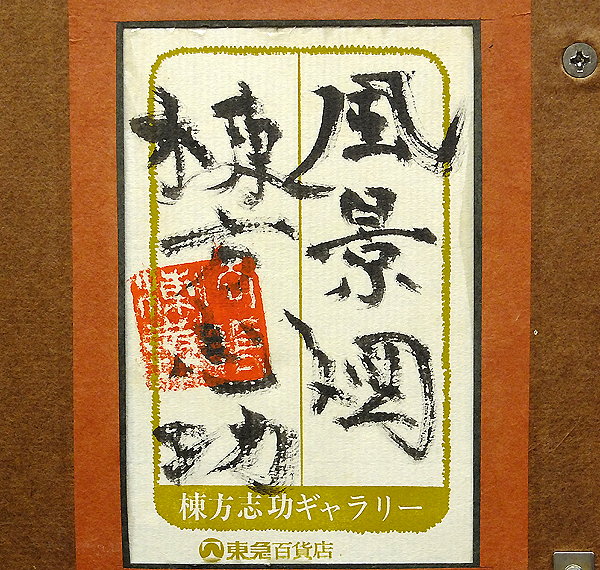 風景
棟方志功
棟方志功ギャラリー
東急百貨店